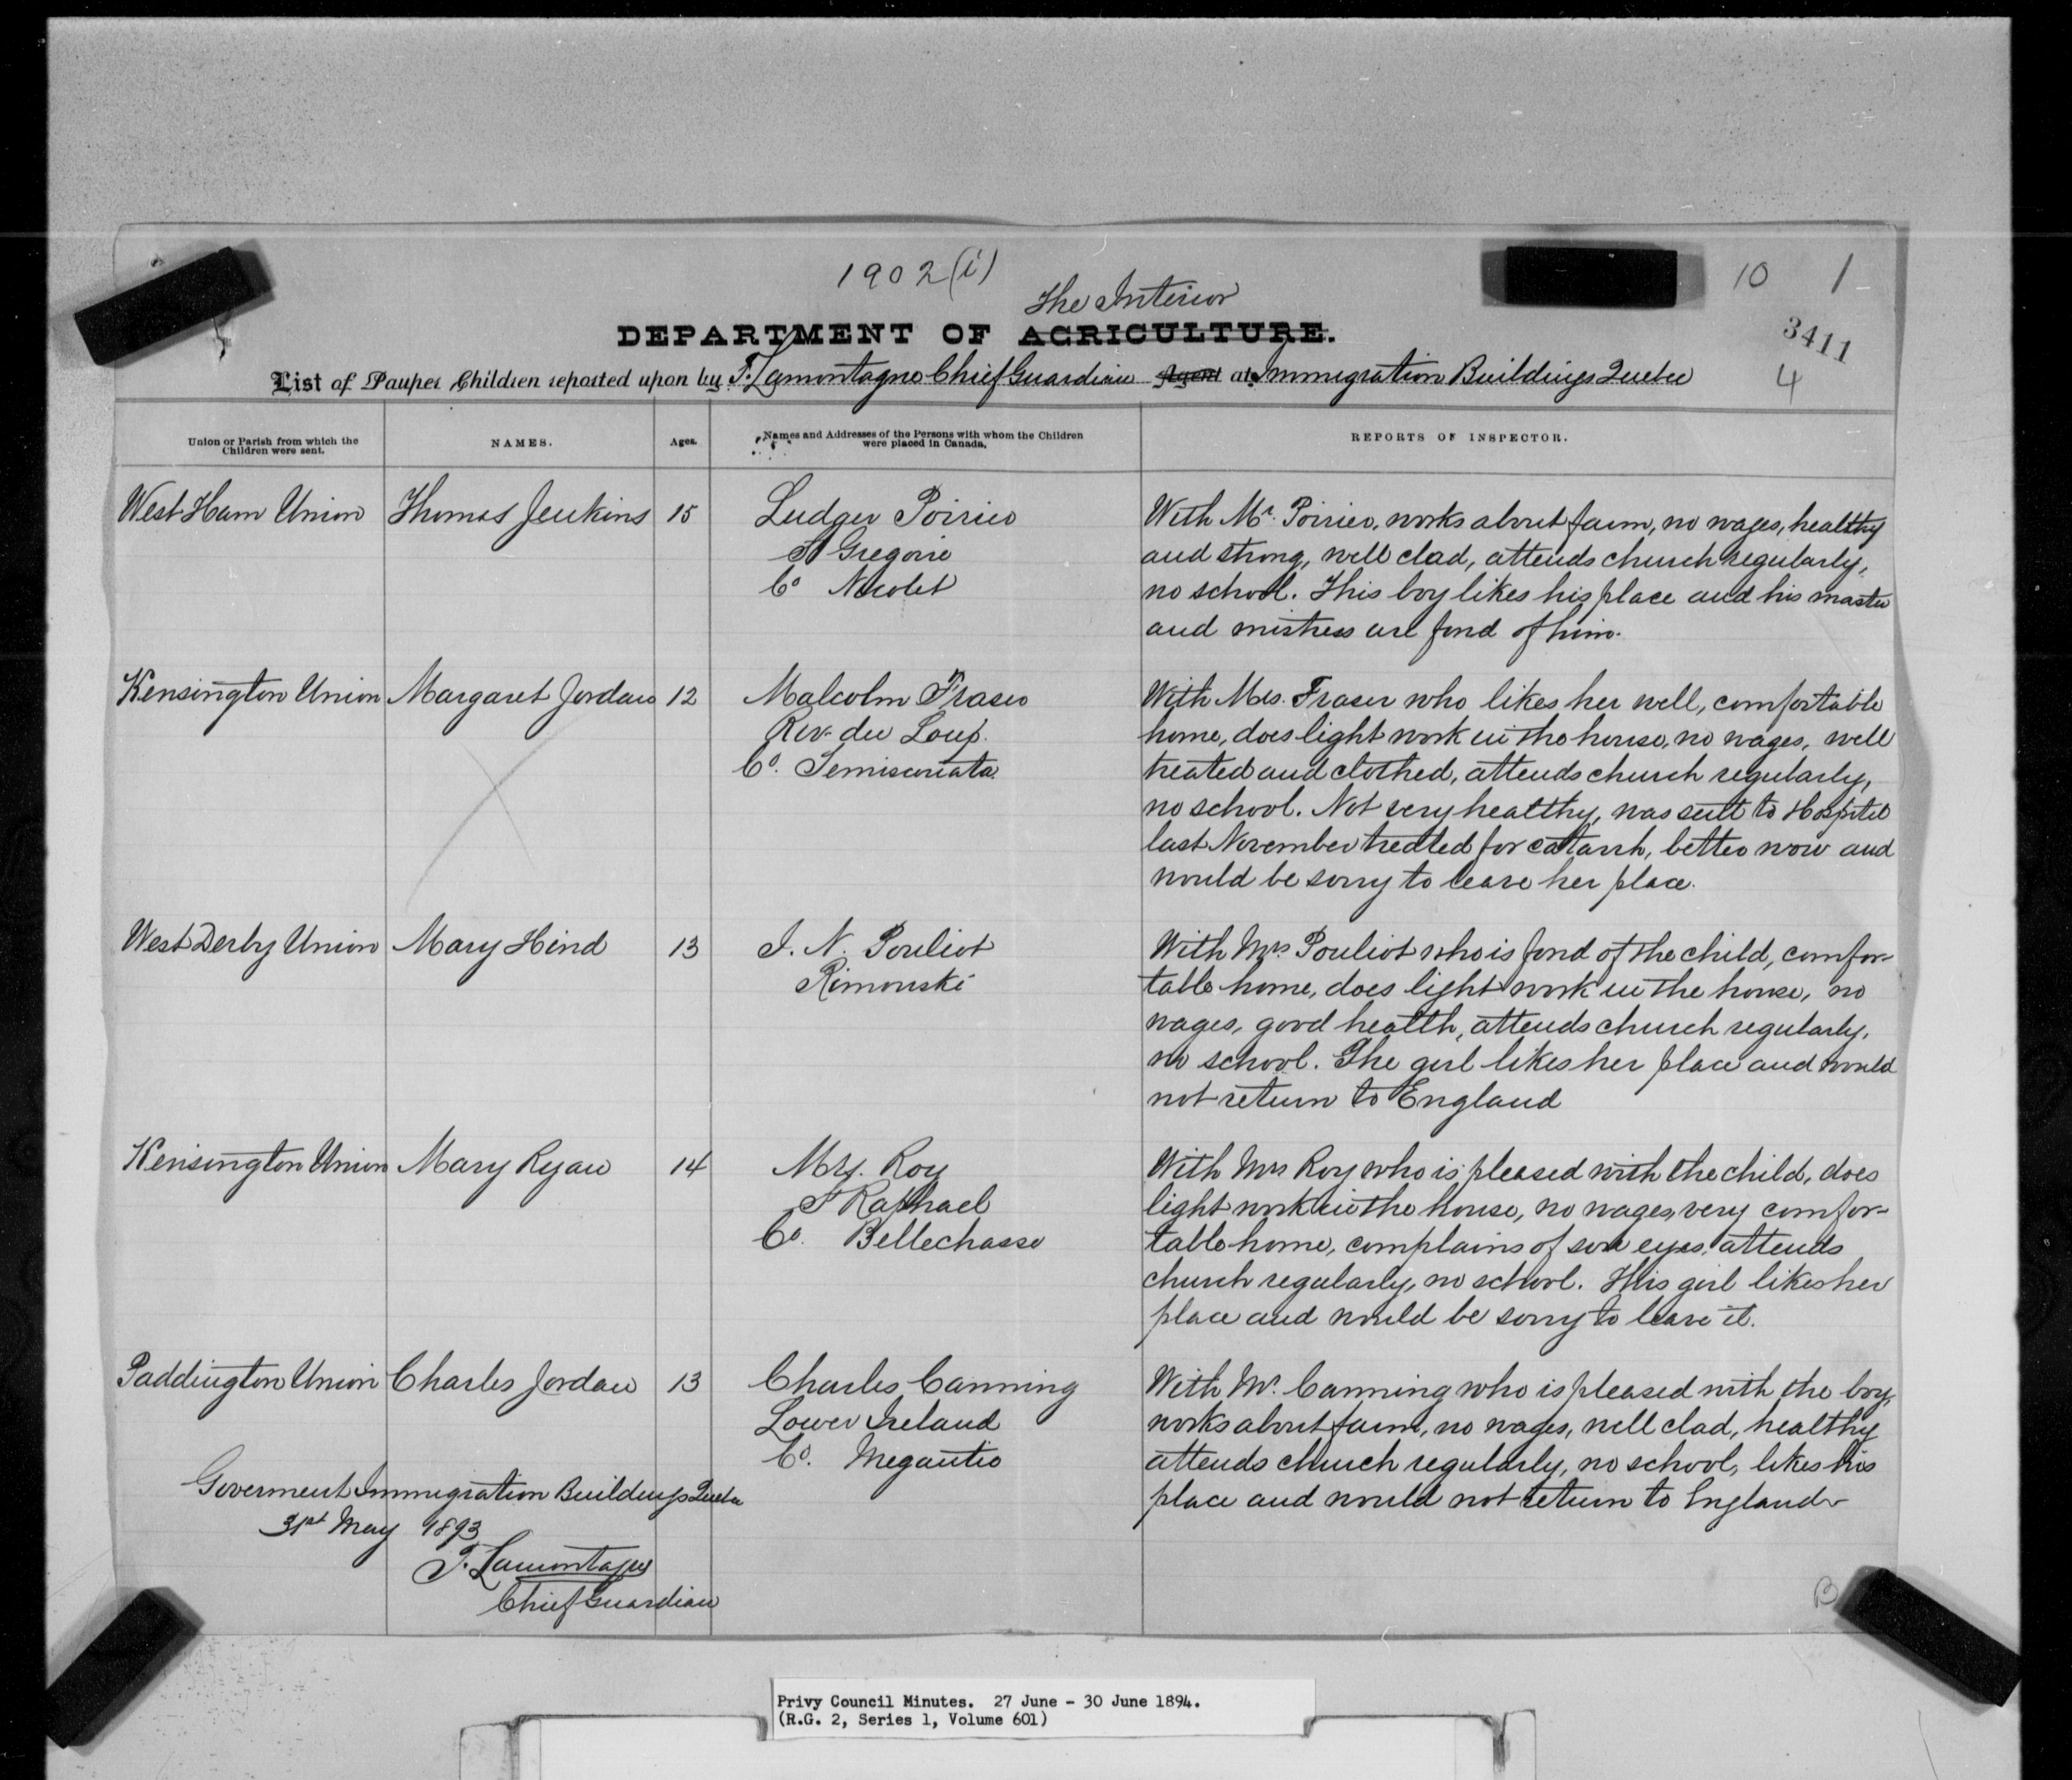 1902(i)
10 1
The Interior
DEPARTMENT OF AGRICULTURE.
3411
List of Pauper Children reported upon by T. Lamontagne Chief Guardian Agent at Immigration Buildings Quebec
4
Union or Parish from which the Children were sent.
NAMES.
Ages.
Names and Addresses of the Persons with whom the Children were placed in Canada.
REPORTS OF INSPECTOR.
West Ham Union
Thomas Jenkins
15
Ludger Poirier
St Gregoire
Co Nicolet
With Mr. Poirier, works about farm, no wages, healthy
and strong, well clad, attends church regularly,
no school. This boy likes his place and his master
and mistress are fond of him.
Kensington Union
Margaret Jordan
12
Malcolm Fraser
Riv. du Loup.
Co. Temiscouata
With Mrs. Fraser who likes her well, comfortable
home, does light work in the house, no wages, well
treated and clothed, attends church regularly,
no school. Not very healthy, was sent to Hospital
last November treated for catarrh, better now and
would be sorry to leave her place.
West Derby Union
Mary Hind
13
J. N. Pouliot
Rimouski
With Mrs Pouliot who is fond of the child, comfor-
table home, does light work in the house, no
wages, good health, attends church regularly,
no school. The girl likes her place and would
not return to England
Kensington Union
Mary Ryan
14
Mrs. Roy
St Raphael
Co. Bellechasse
With Mrs Roy who is pleased with the child, does
light work in the house, no wages, very comfor-
table home, complains of sore eyes, attends
church regularly, no school. This girl likes her
place and would be sorry to leave it.
Paddington Union
Charles Jordan
13
Charles Canning
Lower Ireland
Co. Megantic
With Mr. Canning who is pleased with the boy,
works about farm, no wages, well clad, healthy
attends church regularly, no school, likes his
place and would not return to England
Goverment Immigration Buildings Quebec
31st May 1893
T. Lamontagne
Chief Guardian
B
Privy Council Minutes. 27 June - 30 June 1894.
(R.G. 2, Series 1, Volume 601)